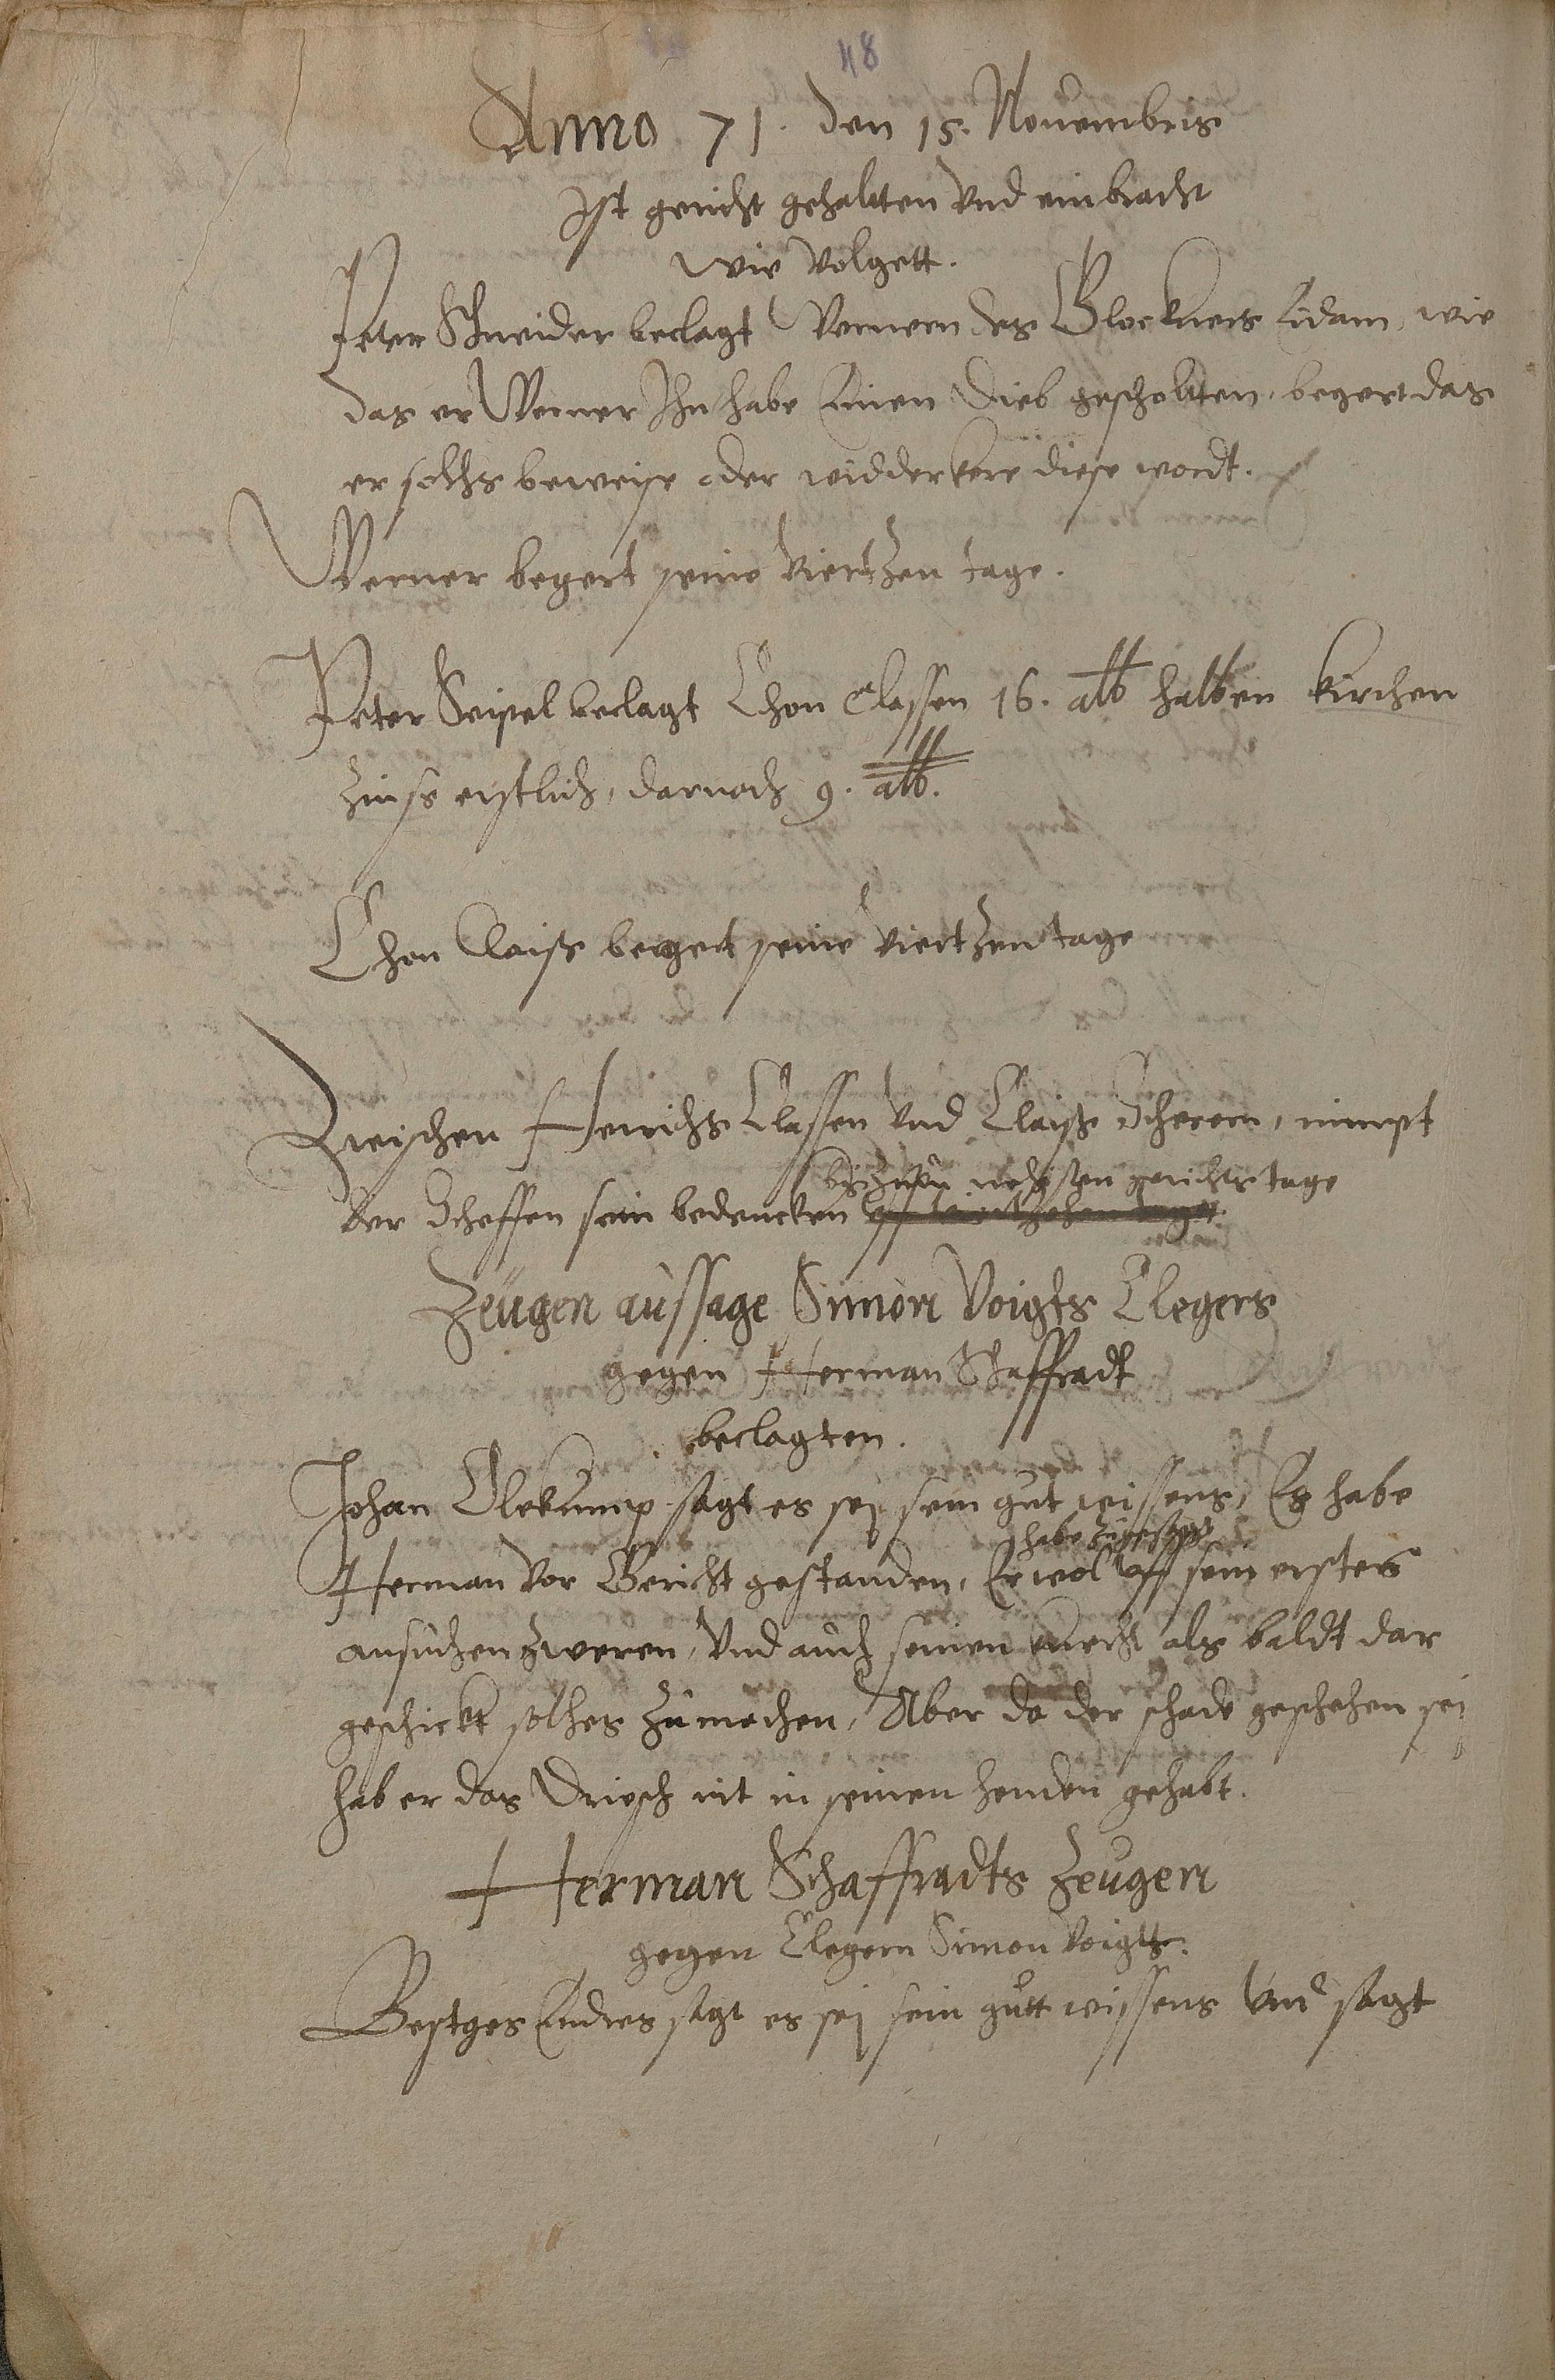 48
Anno 71. den 15. Nouembris
Ist gericht gehaltten vnd einbracht
wie volgett.
Peter Schneider beclagt Wernern des Glockners Eidam, wie
das er Werner Ihn habe Einen Dieb gescholtten, begert das
er solchs beweise oder widderkere diese wordt.
Werner begert seine viertzen tage.
Peter Seipel beclagt Chon Classen 16. alb halben kirchen
Zinse erstlich, darnach 9. alb.
Chon Claiß begert seine viertzen tage
Zwischen Henrichs Classen vnd Claiß Scherern, nimpt
biß zum nehisten gerichts tage
der Scheffen sein bedencken vff viertzehen tage.
Zeugen aussage Simon Voigts Clegers
gegen Herman Schaffradt
beclagten.
Johan sagt es sej sein gut wissens, Es habe
habe zugesagt
Herman vor Gericht gestanden, Er wol vff sein erstes
ansuchen zweren, vnd auch seinen knecht als baldt dar
geschickt solches zumachen, Aber da der schade geschehen sej
hab er das Driesch nit in seinen henden gehabt.
Herman Schaffradts Zeugen
gegen Clegern Simon Voigtt.
Bestges Endres sagt es sej sein gutt wissens vnd sagt